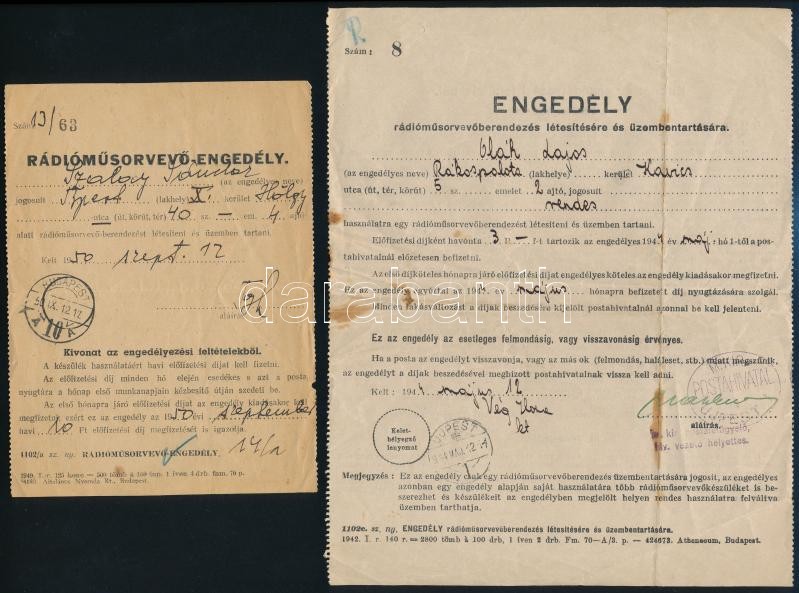 Szám 13/63
RÁDIÓMŰSORVEVŐ-ENGEDÉLY.
Szalay Sándor
(az engedélyes neve)
jogosult Bpest (lakhely) X. kerület Hölgy
utca (út, körút, tér) 40 sz. — em. 4 ajtó
alatti rádióműsorvevő-berendezést létesíteni és üzemben tartani.
Kelt 1950 szept. 12
BUDAPEST
aláírás
Kivonat az engedélyezési feltételekből.
A készülék használatáért havi előfizetési díjat kell fizetni.
Az előfizetési díj minden hó elején esedékes s azt a posta,
nyugtára a hónap első munkanapjain kézbesítő útján szedeti be.
Az első hónapra járó előfizetési díjat az engedély kiadásakor kell
megfizetni ezért ez az engedély az 1950 évi szeptember
havi 10 Ft előfizetési díj megfizetését is igazolja.
1102/a sz. ny. RÁDIÓMŰSORVEVŐ-ENGEDÉLY.
14/a
Általános Nyomda Rt., Budapest.
R.
Szám: 8
ENGEDÉLY
rádióműsorvevőberendezés létesítésére és üzembentartására.
Oláh Lajos
(az engedélyes neve) Rákospalota (lakhelye) kerület Kavics
utca (út, tér, körút) 5 sz. emelet 2 ajtó, jogosult
rendes
használatra egy rádióműsorvevőberendezést létesíteni és üzemben tartani.
Előfizetési díjként havonta 3 P — f-t tartozik az engedélyes 1944 év máj. hó 1-től a pos-
tahivatalnál előzetesen befizetni.
Az első díjköteles hónapra járó előfizetési díjat engedélyes köteles az engedély kiadásakor megfizetni.
Ez az engedély egyúttal az 1944. év május hónapra befizetett díj nyugtázására szolgál.
Minden lakásváltozást a díjak beszedésére kijelölt postahivatalnál azonnal be kell jelenteni.
Ez az engedély az esetleges felmondásig, vagy visszavonásig érvényes.
Ha a posta az engedélyt visszavonja, vagy az más ok (felmondás, haláleset, stb.) miatt megszűnik,
az engedélyt a díjak beszedésével megbízott postahivatalnak vissza kell adni.
Kelt: 1944 május 12
Vég Ilona
Kelet-
bélyegző
lenyomat
BUDAPEST
POSTAHIVATAL
aláírás.
vezető helyettes.
Megjegyzés: Ez az engedély csak egy rádióműsorvevőberendezés üzembentartására jogosít, az engedélyes
azonban egy engedély alapján saját használatára több rádióműsorvevőkészüléket is be-
szerezhet és készülékeit az engedélyben megjelölt helyen rendes használatra felváltva
üzemben tarthatja.
1102c. sz. ny. ENGEDÉLY rádióműsorvevőberendezés létesítésére és üzembentartására.
1942. I. r. 140 r. = 2800 tömb à 100 drb, 1 íven 2 drb. Fm. 70—A/3. p. — 424673. Athenaeum, Budapest.
darabanth